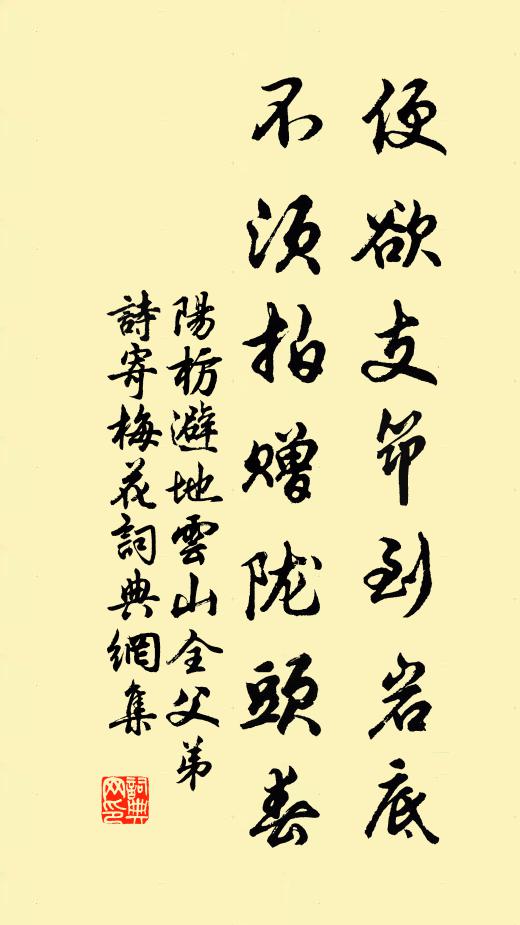 便欲支筇到岩底
不须拍赠陇頭春
陽枋避地雲山全父弟
詩寄梅花詞典網集
詞典网印